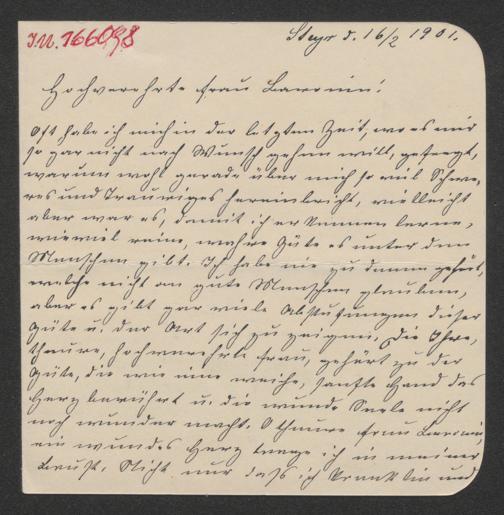 I.N. 166098
Steyr d. 16/2 1901.
Hochverehrte Frau Baronin!
Oft habe ich mich in der letzten Zeit, wo es mir
so gar nicht nach Wunsch gehen will, gefragt,
warum wohl gerade über mich so viel Schwe-
res und Trauriges hereinbricht, vielleicht
aber war es, damit ich erkennen lerne,
wieviel reine, wahre Güte es unter den
Menschen gibt. Ich habe nie zu denen gehört,
welche nicht an gute Menschen glauben,
aber es gibt gar viele Abstufungen dieser
Güte u. der Art sich zu zeigen. Die Ihre,
theure, hochverehrte Frau, gehört zu der
Güte, die wie eine weiche, sanfte Hand das
Herz berührt u. die wunde Seele nicht
noch wunder macht. O theure Frau Baronin,
ein wundes Herz trage ich in meiner
Brust. Nicht nur daß ich krank bin und